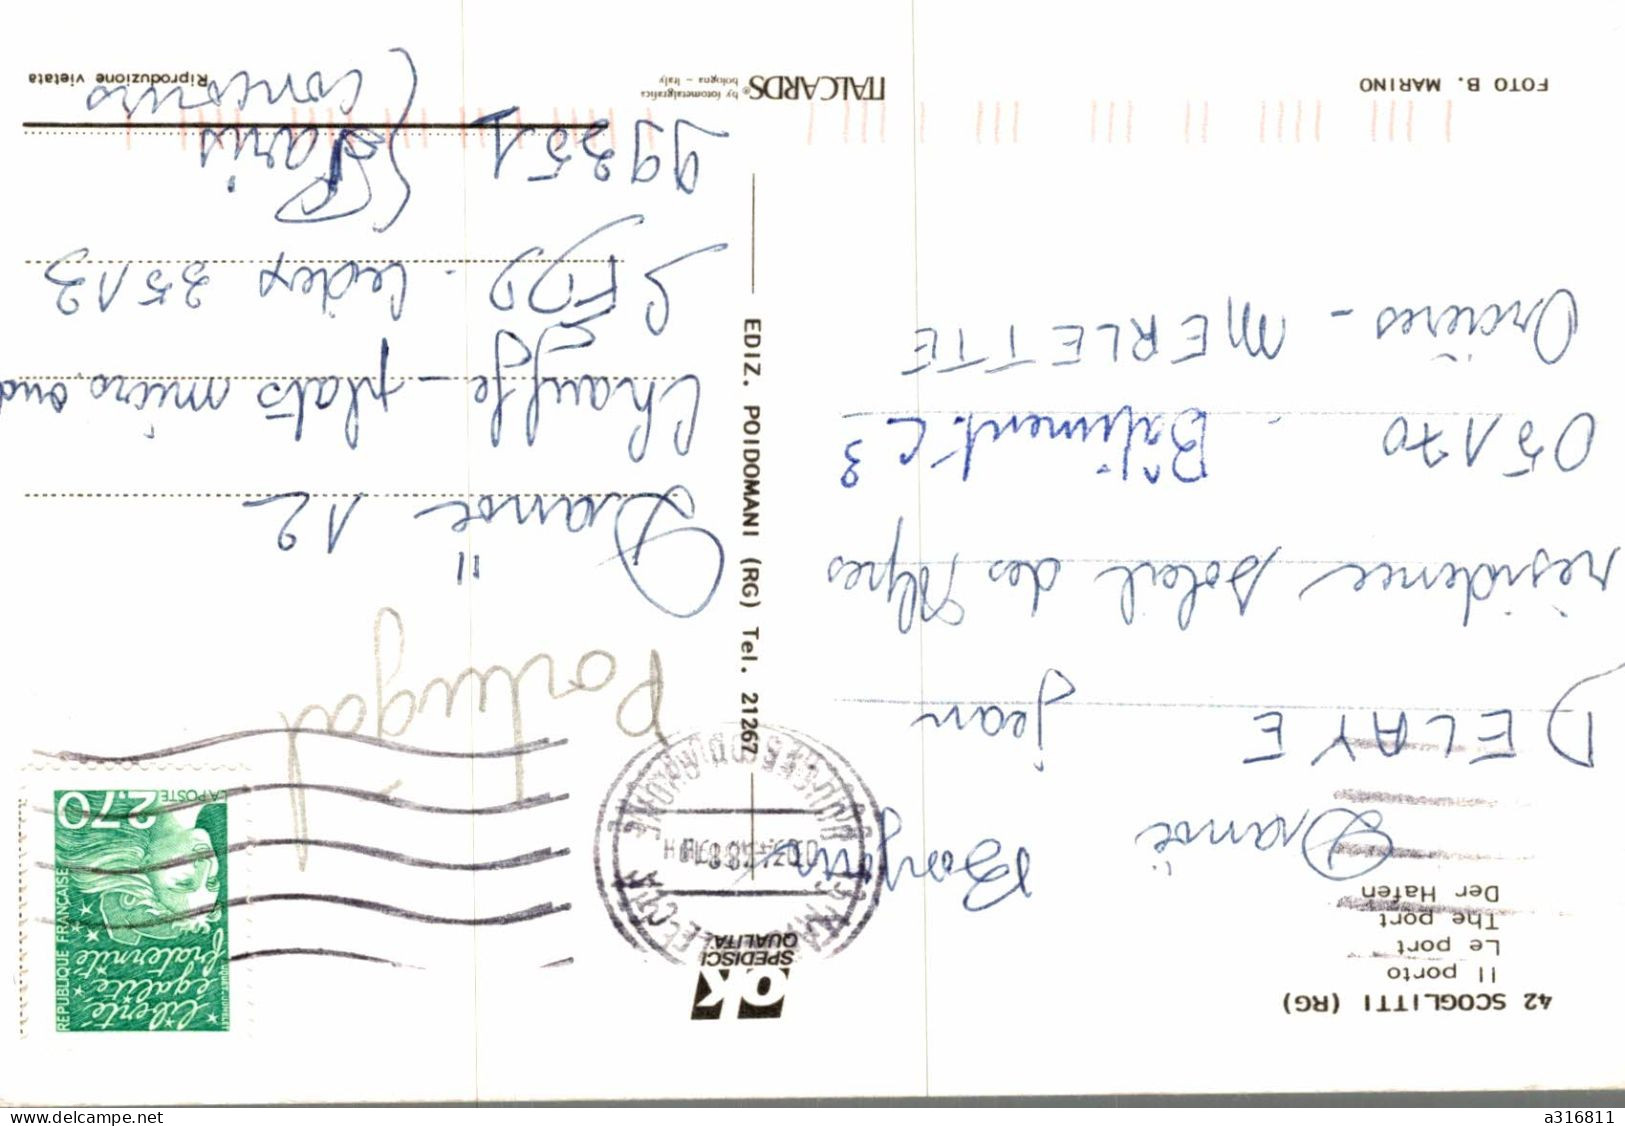 42 SCOGLITTI (RG)
Il porto
Le port
The port
Der Hafen
DELAYE jean
résidence soleil des Alpes
05170 - Bâtiment C3
Orcières - MERLETTE
FOTO B. MARINO
OK
SPEDISCI
QUALITA'
EDIZ. POIDOMANI (RG) Tel. 21267
ITALCARDS® by fotometalgrafica
bologna - Italy
liberté
égalité
fraternité
RÉPUBLIQUE FRANÇAISE
LA POSTE 2,70
Portugal
12
Chauffe - plats micro ond
SFDD - Cedex 3513
99351 Paris
(Concours
Riproduzione vietata
delcampe.net
a316811